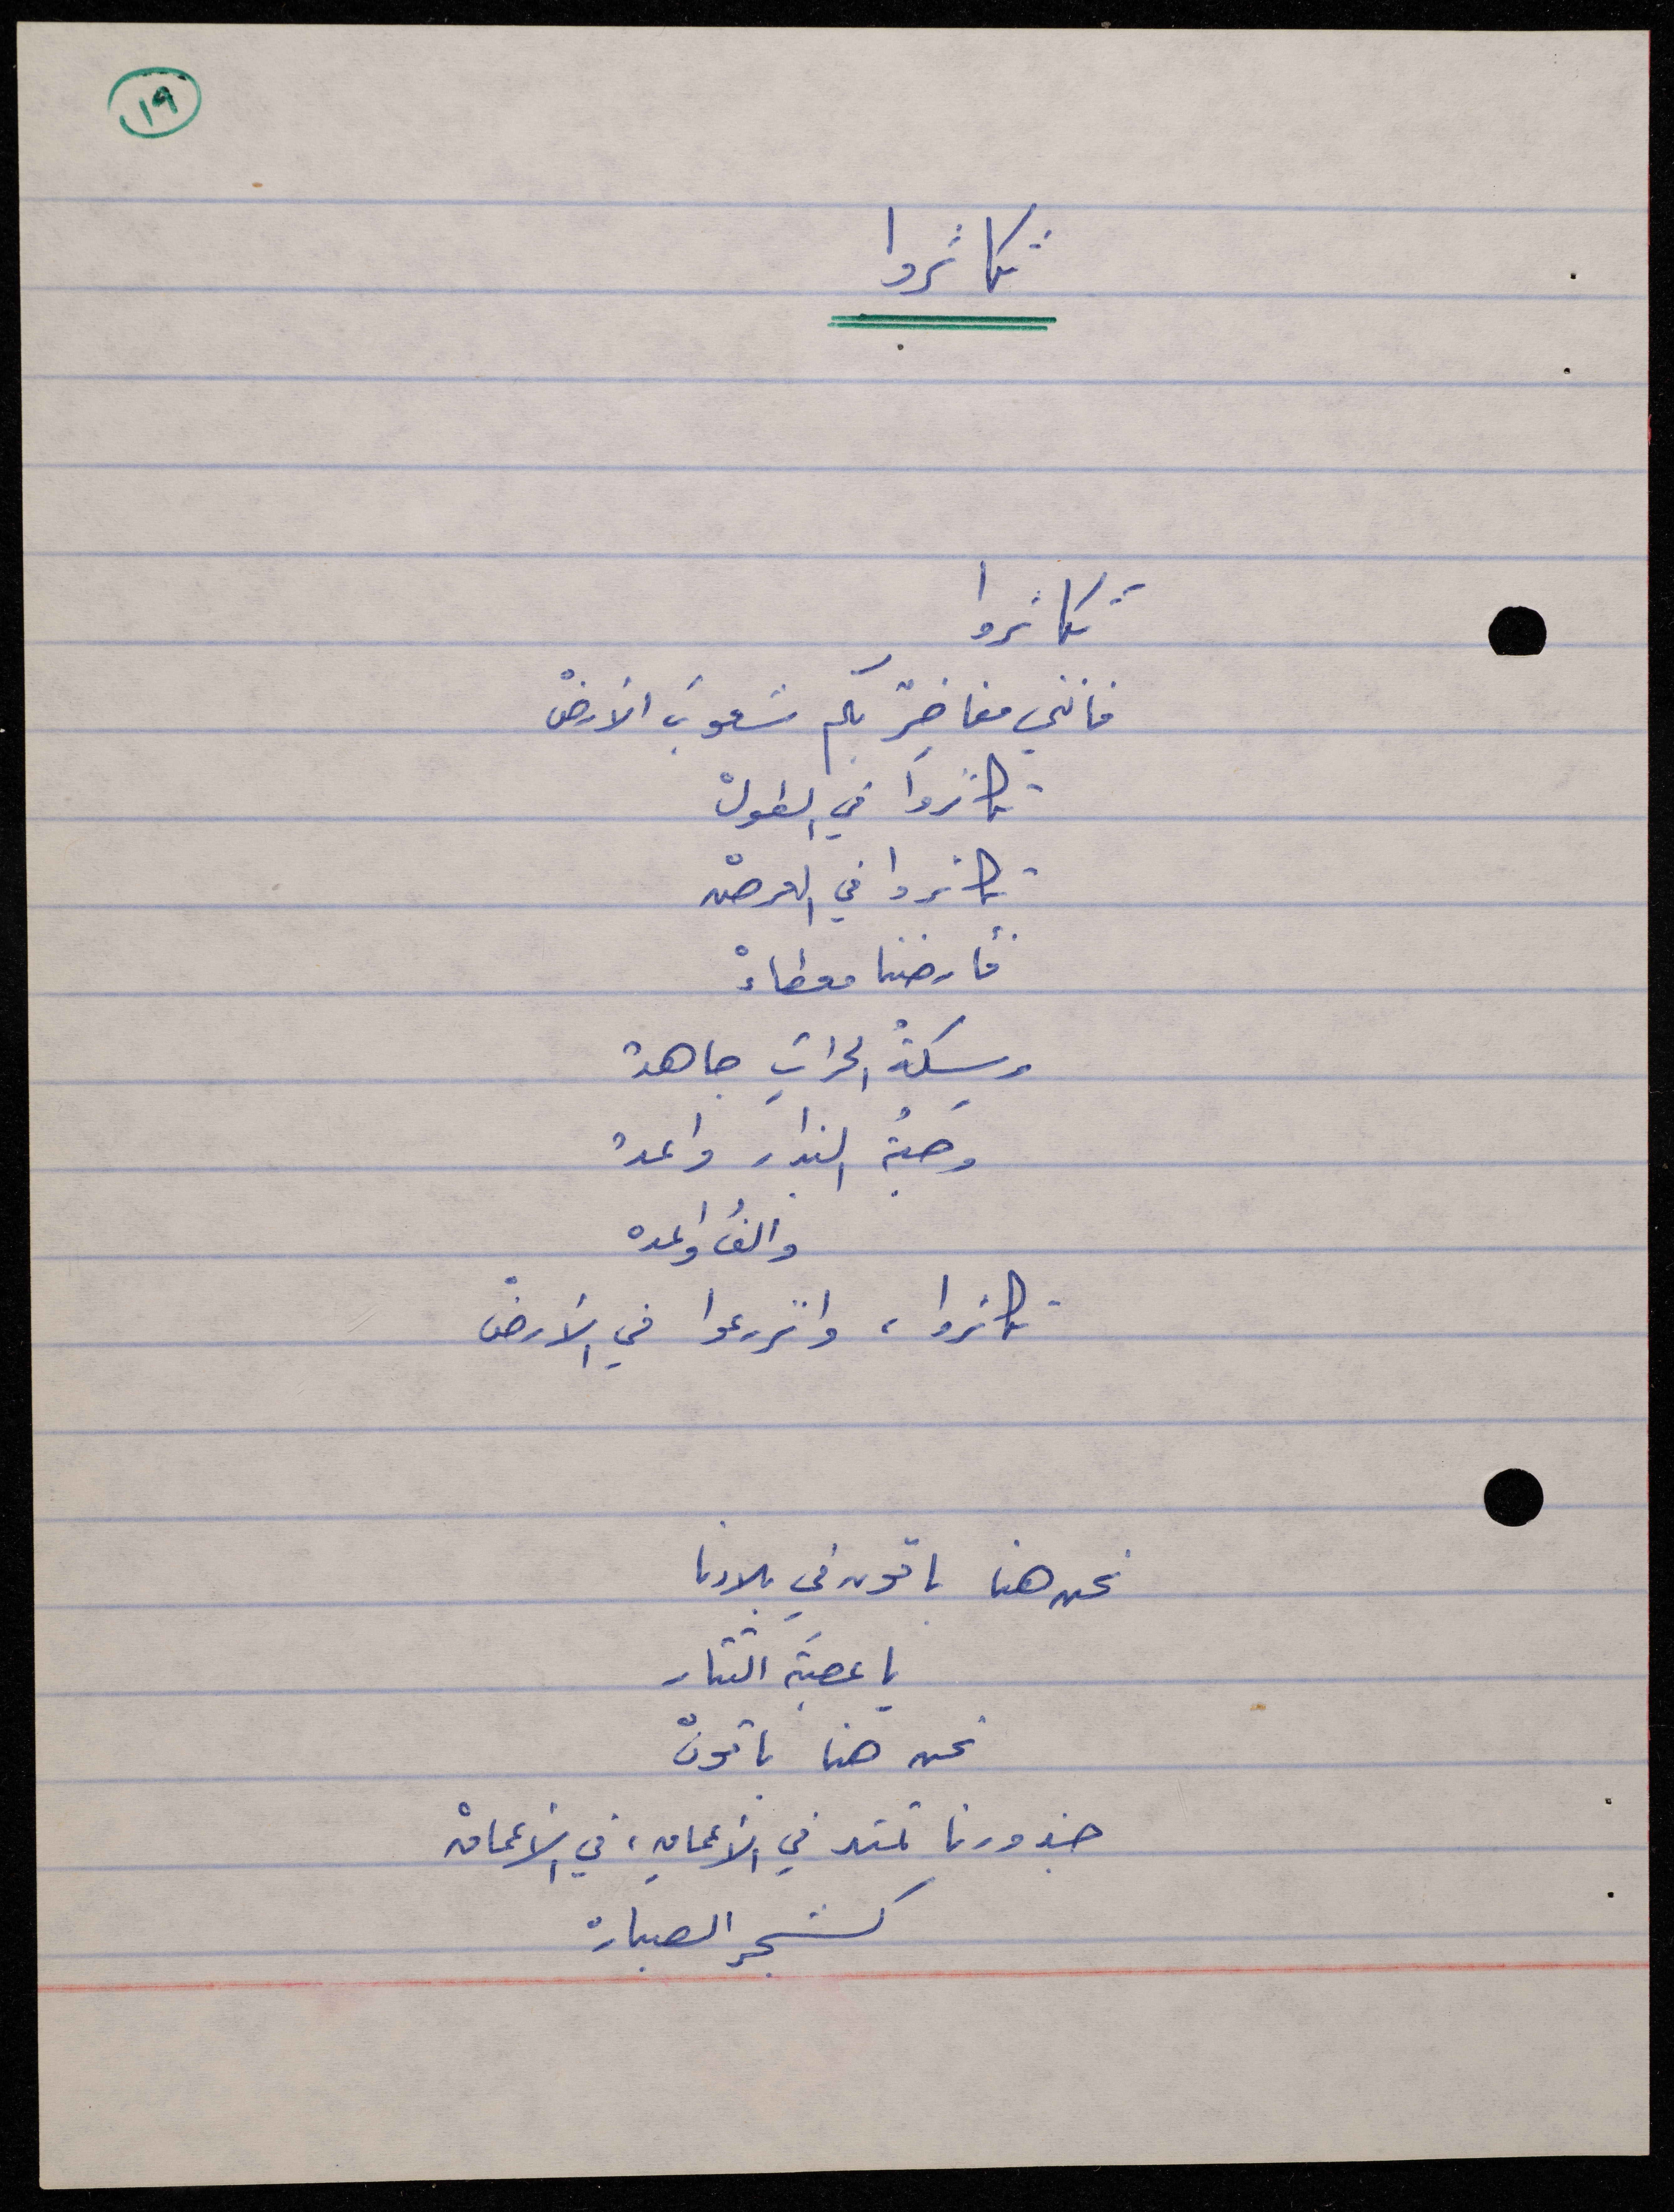 ١٩
تكاثروا
تكاثروا
فإنني مفاخرٌ بكم شعوبَ الأرضْ
تكاثروا في الطولْ
تكاثروا في العرضْ
فأرضنا معطاءْ
وسكةُ الحراثِ جاهدة
وحبةُ البذار واعدة
والفُ واعده
تكاثروا، وانزرعوا في الأرضْ
نحن هنا باقون في بلادنا
يا عصبَة التتار
نحن هنا باقونْ
جذورنا تمتد في الأعماقِ، في الأعماقْ
كشجر الصبار